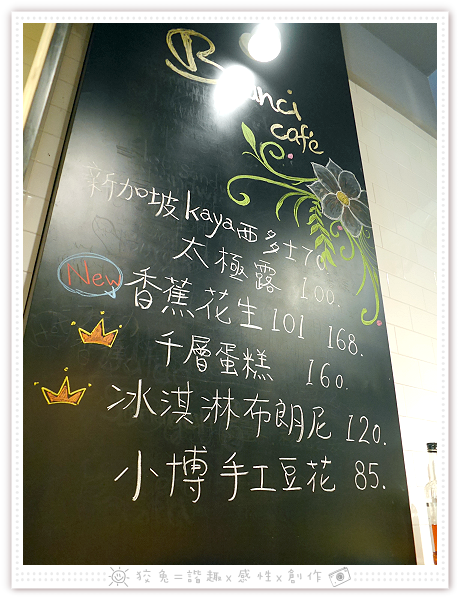 café
新加坡kaya西多士70
太極露 100.
New 香蕉花生101 168.
千層蛋糕 160.
冰淇淋布朗尼 120.
小博手工豆花 85.
狡兔=諧趣x感性x創作